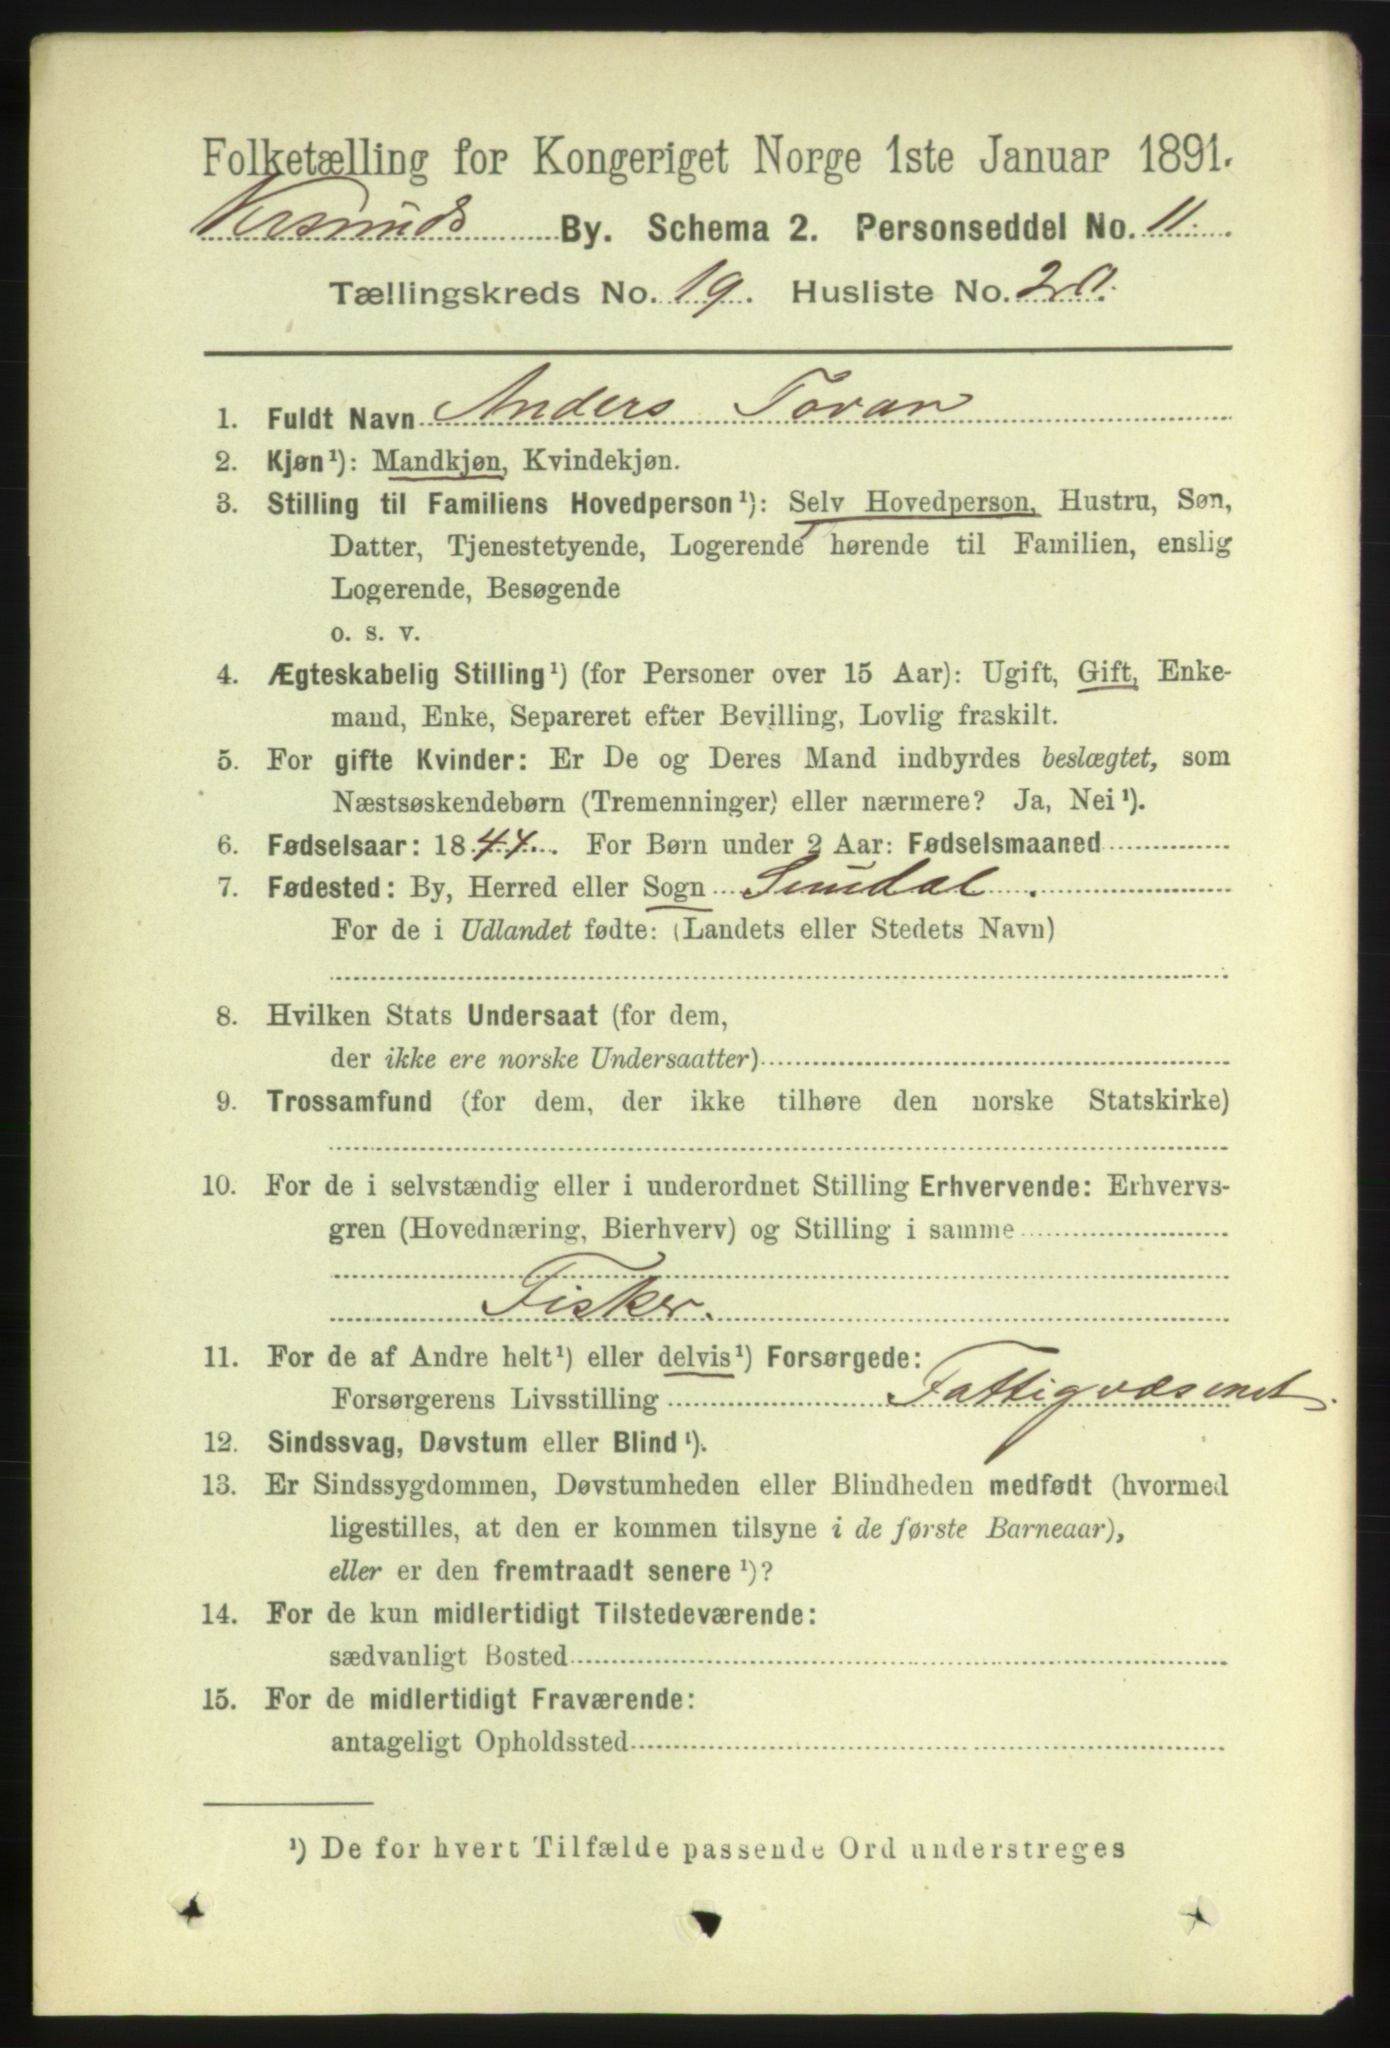 Folketælling for Kongeriget Norge 1ste Januar 1891.
Krsunds By. Schema 2. Personseddel No. 11.
Tællingskreds No. 19. Husliste No. 20.
1. Fuldt Navn Anders Tovan
2. Kjøn¹): Mandkjøn, Kvindekjøn.
3. Stilling til Familiens Hovedperson¹): Selv Hovedperson, Hustru, Søn,
Datter, Tjenestetyende, Logerende hørende til Familien, enslig
Logerende, Besøgende
o. s. v.
4. Ægteskabelig Stilling¹) (for Personer over 15 Aar): Ugift, Gift, Enke-
mand, Enke, Separeret efter Bevilling, Lovlig fraskilt.
5. For gifte Kvinder: Er De og Deres Mand indbyrdes beslægtet, som
Næstsøskendebørn (Tremenninger) eller nærmere? Ja, Nei¹).
6. Fødselsaar: 1844. For Børn under 2 Aar: Fødselsmaaned
7. Fødested: By, Herred eller Sogn Sundal.
For de i Udlandet fødte: (Landets eller Stedets Navn)
8. Hvilken Stats Undersaat (for dem,
der ikke ere norske Undersaatter)
9. Trossamfund (for dem, der ikke tilhøre den norske Statskirke)
10. For de i selvstændig eller i underordnet Stilling Erhvervende: Erhvervs-
gren (Hovednæring, Bierhverv) og Stilling i samme
Fisker.
11. For de af Andre helt¹) eller delvis¹) Forsørgede:
Forsørgerens Livsstilling Fattigvæsenet.
12. Sindssvag, Døvstum eller Blind¹).
13. Er Sindssygdommen, Døvstumheden eller Blindheden medfødt (hvormed
ligestilles, at den er kommen tilsyne i de første Barneaar),
eller er den fremtraadt senere¹)?
14. For de kun midlertidigt Tilstedeværende:
sædvanligt Bosted
15. For de midlertidigt Fraværende:
antageligt Opholdssted
¹) De for hvert Tilfælde passende Ord understreges